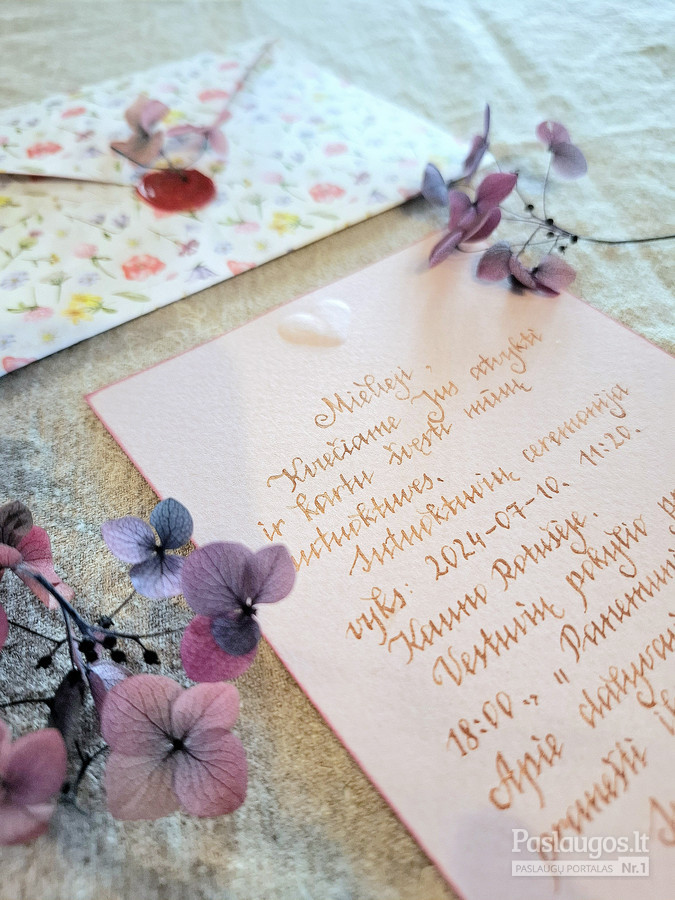 Mielieji,
Kviečiame Jus atvykti
ir kartu švęsti mūsų
sutuoktuves.
Sutuoktuvių ceremonija
vyks: 2024-07-10. 11:20.
Kauno Rotušėje.
Vestuvių pokylio
18:00.. "Panemuni
Apie dalyva
pranešti
Paslaugos.lt
PASLAUGŲ PORTALAS Nr.1